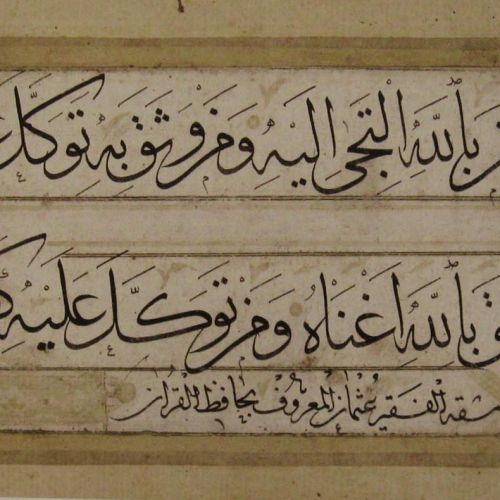 بِأللهِ التَجَى اِلَيْهِ وَمَنْ وَثِقَ بِهِ تَوَكَّلَ
بِأللهِ اَغْنَاهُ وَمَنْ تَوَكَّلَ عَلَيْهِ
مشقه الفقير عثمان المعروف بحافظ القرآن